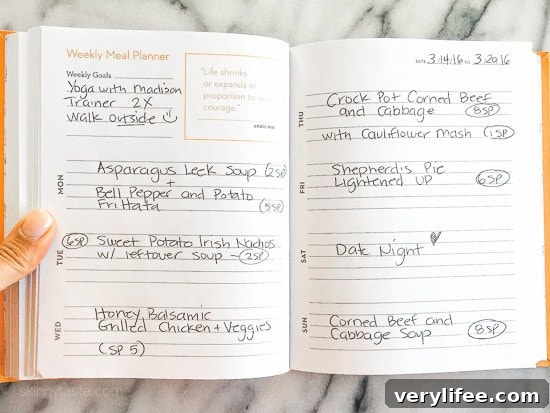 Weekly Meal Planner
Weekly Goals
Yoga with Madison
Trainer 2X
Walk outside
"Life shrinks
or expands in
proportion to
courage."
ANAIS NIN
MON
Asparagus Leek Soup (2SP)
+
Bell Pepper and Potato
Frittata (5SP)
TUE
6SP Sweet Potato Irish Nachos
w/ leftover soup - 2SP
WED
Honey Balsamic
Grilled Chicken + Veggies
(SP 5)
DATE 3.14.16 TO 3.20.16
THU
Crock Pot Corned Beef
and Cabbage 8SP
with Cauliflower Mash 1SP
FRI
Shepherd's Pie
Lightened UP 6SP
SAT
Date Night
SUN
Corned Beef and
Cabbage Soup 8SP
skinnytaste.com
verylifee.com